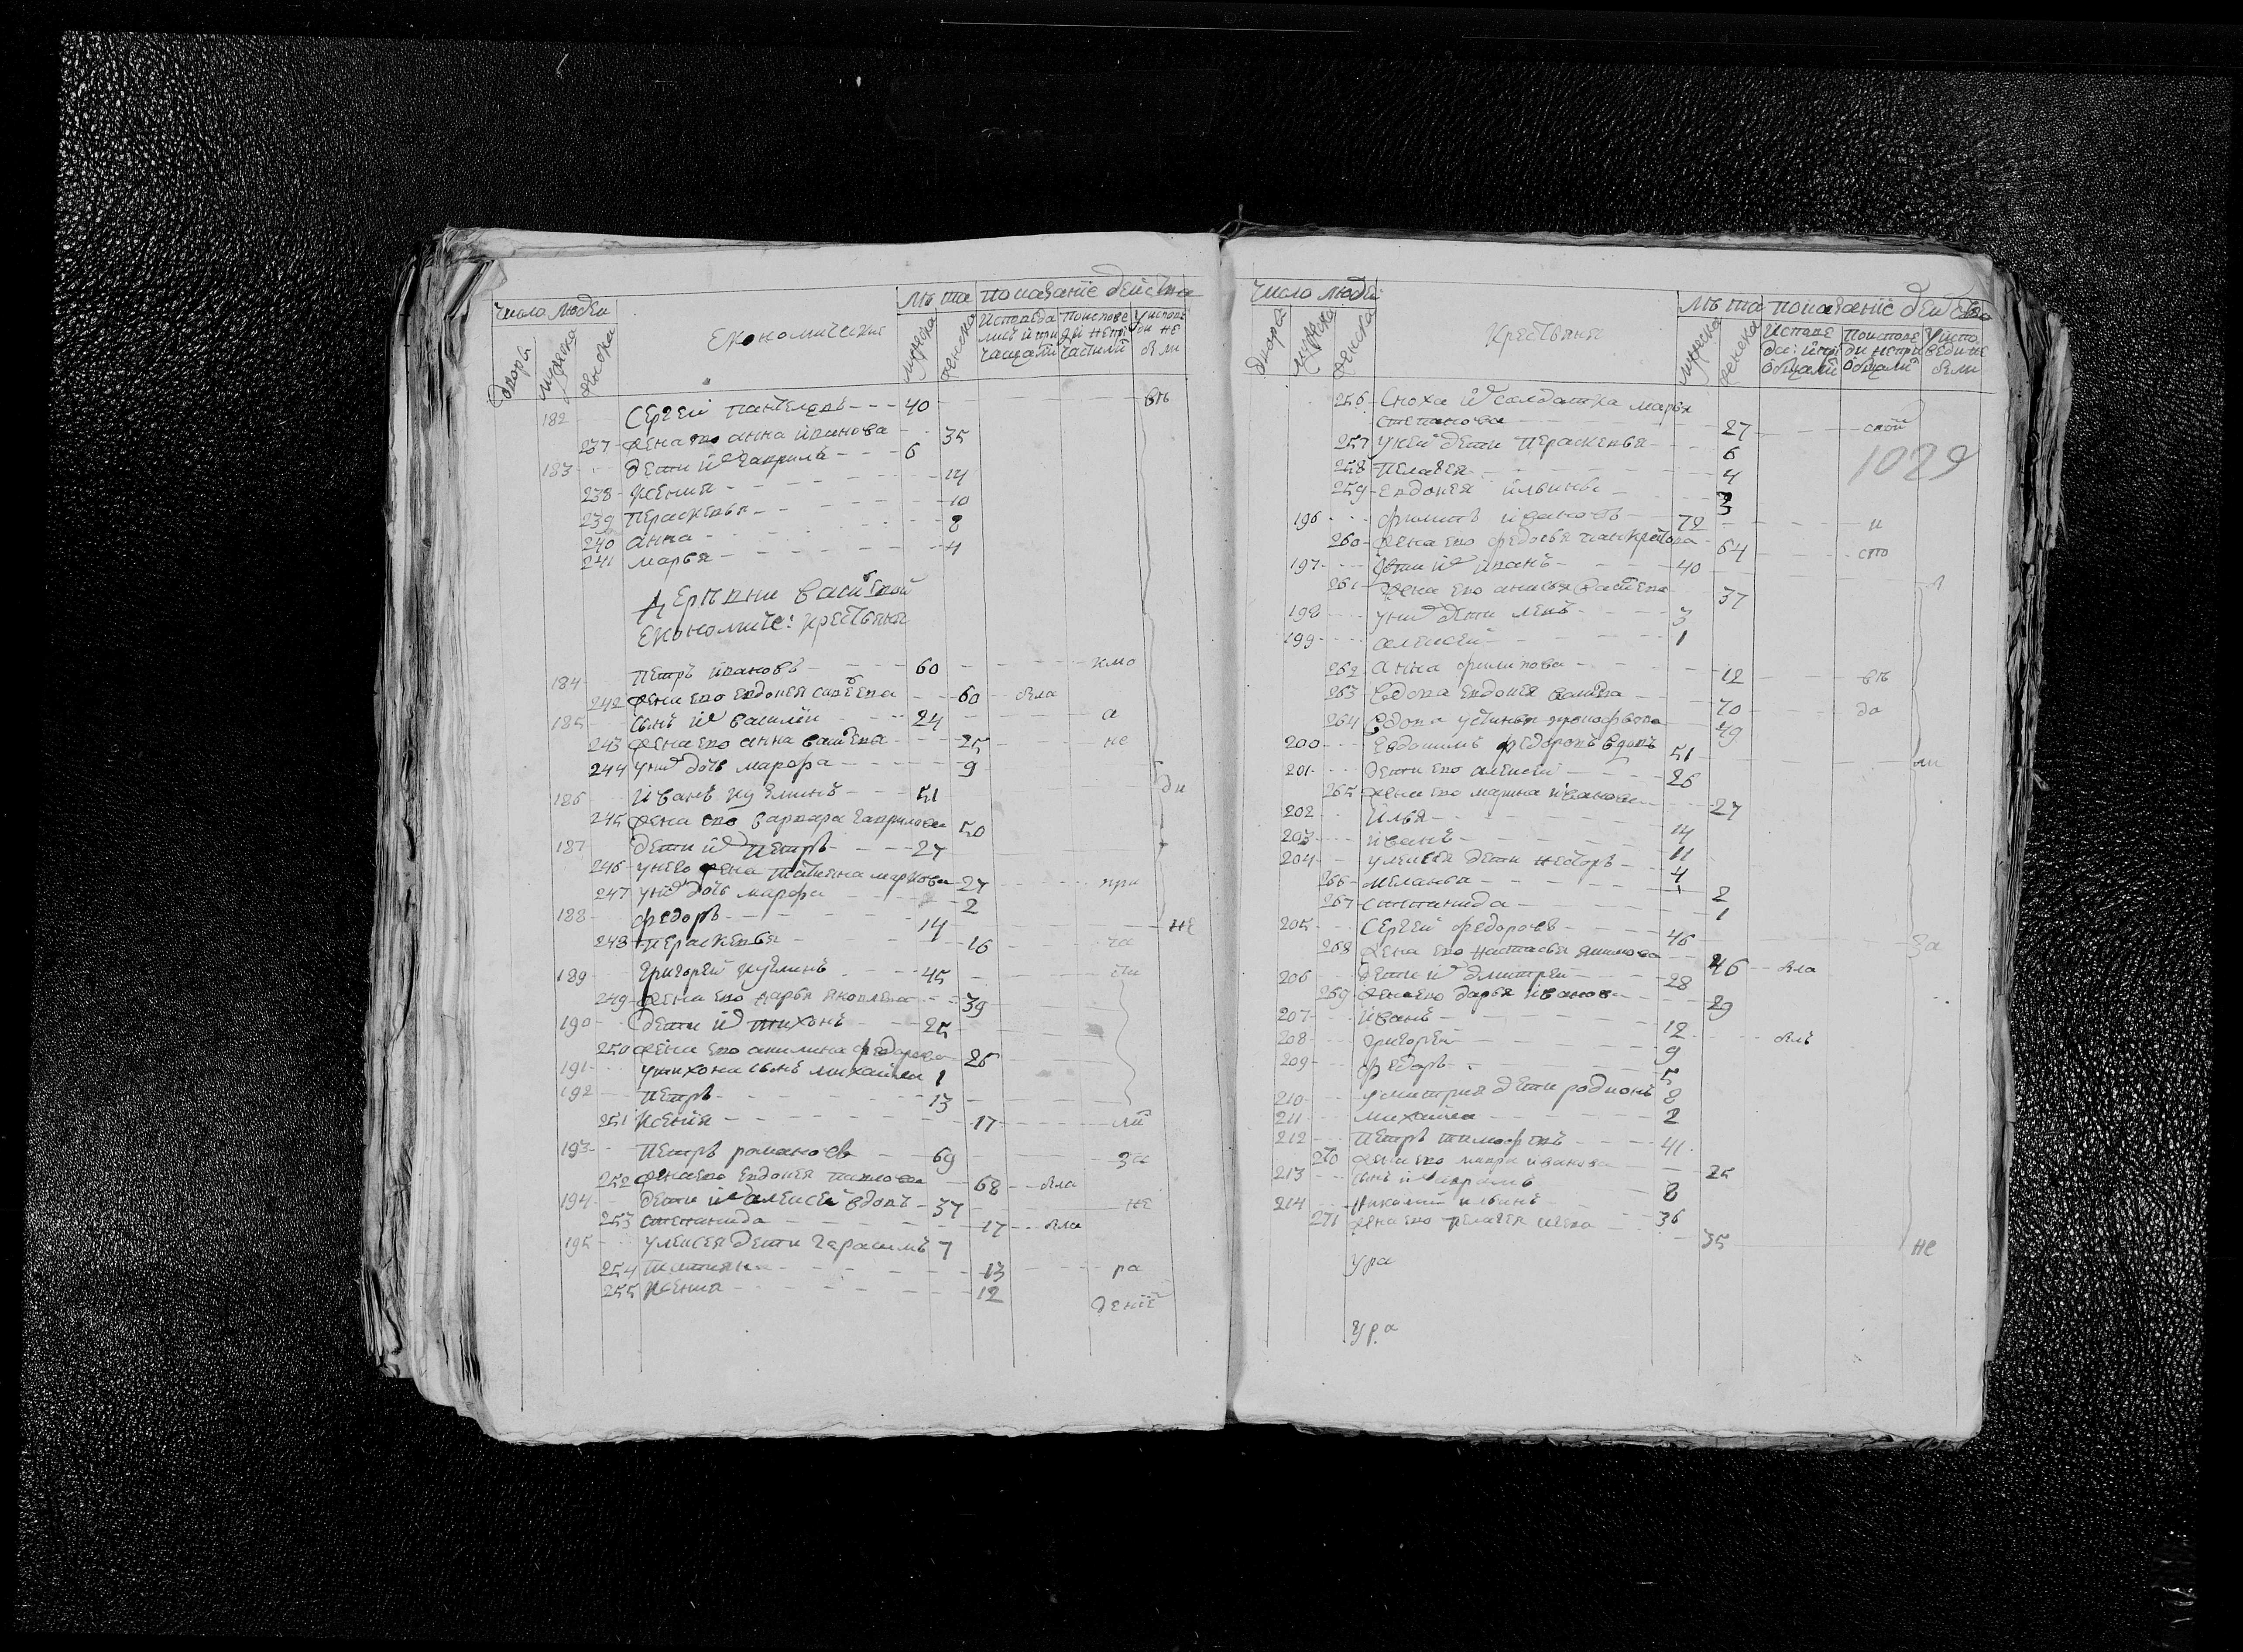 Число людей
Лѣта показание действа
двора
мужеска
женска
Економические
мужеска
женска
Исповеда
лись и при
чащали
поиспове
ди непри
частили
уиспове
ди не
были
182 Сергей пантелеевъ 40 въ
237 жена ево анна иванова 35
183 дети ихъ гаврила 6
238 Ксения 14
239 Перасковья 10
240 анна 8
241 марья 4
Деревни
Економиче: крестьяне
184 Петръ ивановъ 60 кмо
242 жена ево евдокея савеева 60 была
185 сынъ ихъ василей 24 а
243 жена ево анна 25 не
244 у них дочь марфа 9
186 иванъ кузминъ 51 ди
245 жена ево варвара гаврилова 50
187 дети ихъ Петръ 27
246 у него жена татиана маркова 27 при
247 у них дочь марфа 2
188 федоръ 14 не
248 перасковья 16 ча
189 Григорей кузминъ 45 сти
249 жена ево дарья яковлева 39
190 дети ихъ тихонъ 25
250 жена ево акилина федорова 26
191 у тихона сынъ михаила 1
192 Петръ 13
251 Ксения 17 ли
193 Петръ романовъ 69 за
252 жена ево евдокея павлова 68 была
194 дети ихъ алексей вдовъ 37 не
253 степанида 17 была
195 у алексея дети гарасимъ 7
254 татияна 13 ра
255 Ксения 12
дение
Число людей
Лѣта показание действа
двора
мужеска
женска
Крестьяне
мужеска
женска
Испове
ди: и при
общали
поиспове
ди непри
общали
уиспо
веди не
были
256 Сноха их солдатка марья
степанова 27 скои
257 у ней дети Перасковья 6
1029
258 Пелагея 4
259 евдокея ильина 3
196 филипъ ивановъ 72 и
260 жена ево федосья панкратова 64 сто
197 дети ихъ иванъ 40
261 жена ево анисья 37
198 у них дети левъ 3
199 алексей 1
262 анна филипова 12 въ
263 вдова евдокея 70 до
264 вдова устинья прокофьева 49
200 Евдокимъ федоровъ вдовъ 51 ли
201 дети ево алексей 26
265 жена ево марина иванова 27
202 Илья 14
203 иванъ 11
204 у алексея дети несторъ 4
266 меланья 2
267 степанида 1
205 Сергей федоровъ 46 за
268 жена ево настасья 46 была
206 дети ихъ дмитрей 28
269 жена ево дарья иванова 29
207 Иванъ 12
208 григорей 9 былъ
209 федоръ 5
210 у дмитрия дети родионъ 8
211 михаила 2
212 Петръ тимофеевъ 41
270 жена ево мавра иванова 25
213 сынъ ихъ 8
214 николай ильинъ 36
271 жена ево пелагея 35 не
ура
ура